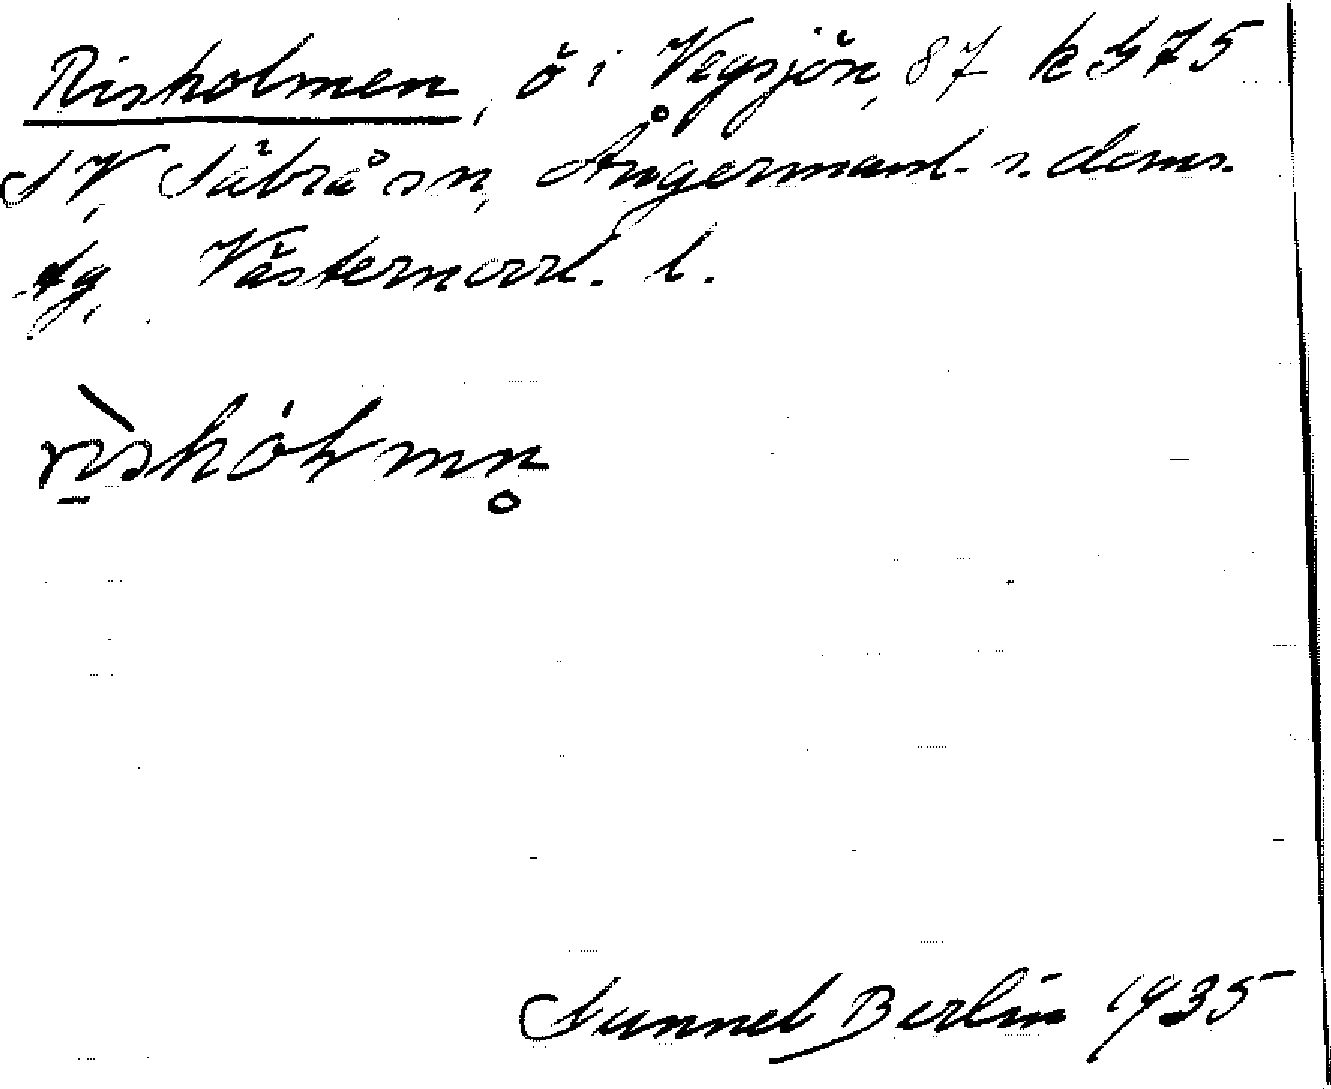 Risholmen, ö i Vegsjön, 87 k G 75
SV, Säbrå sn, Ångermanl. s. doms.
tg, Västernorrl. l.
rìshólmn̥
Gunnel Berlin 1935